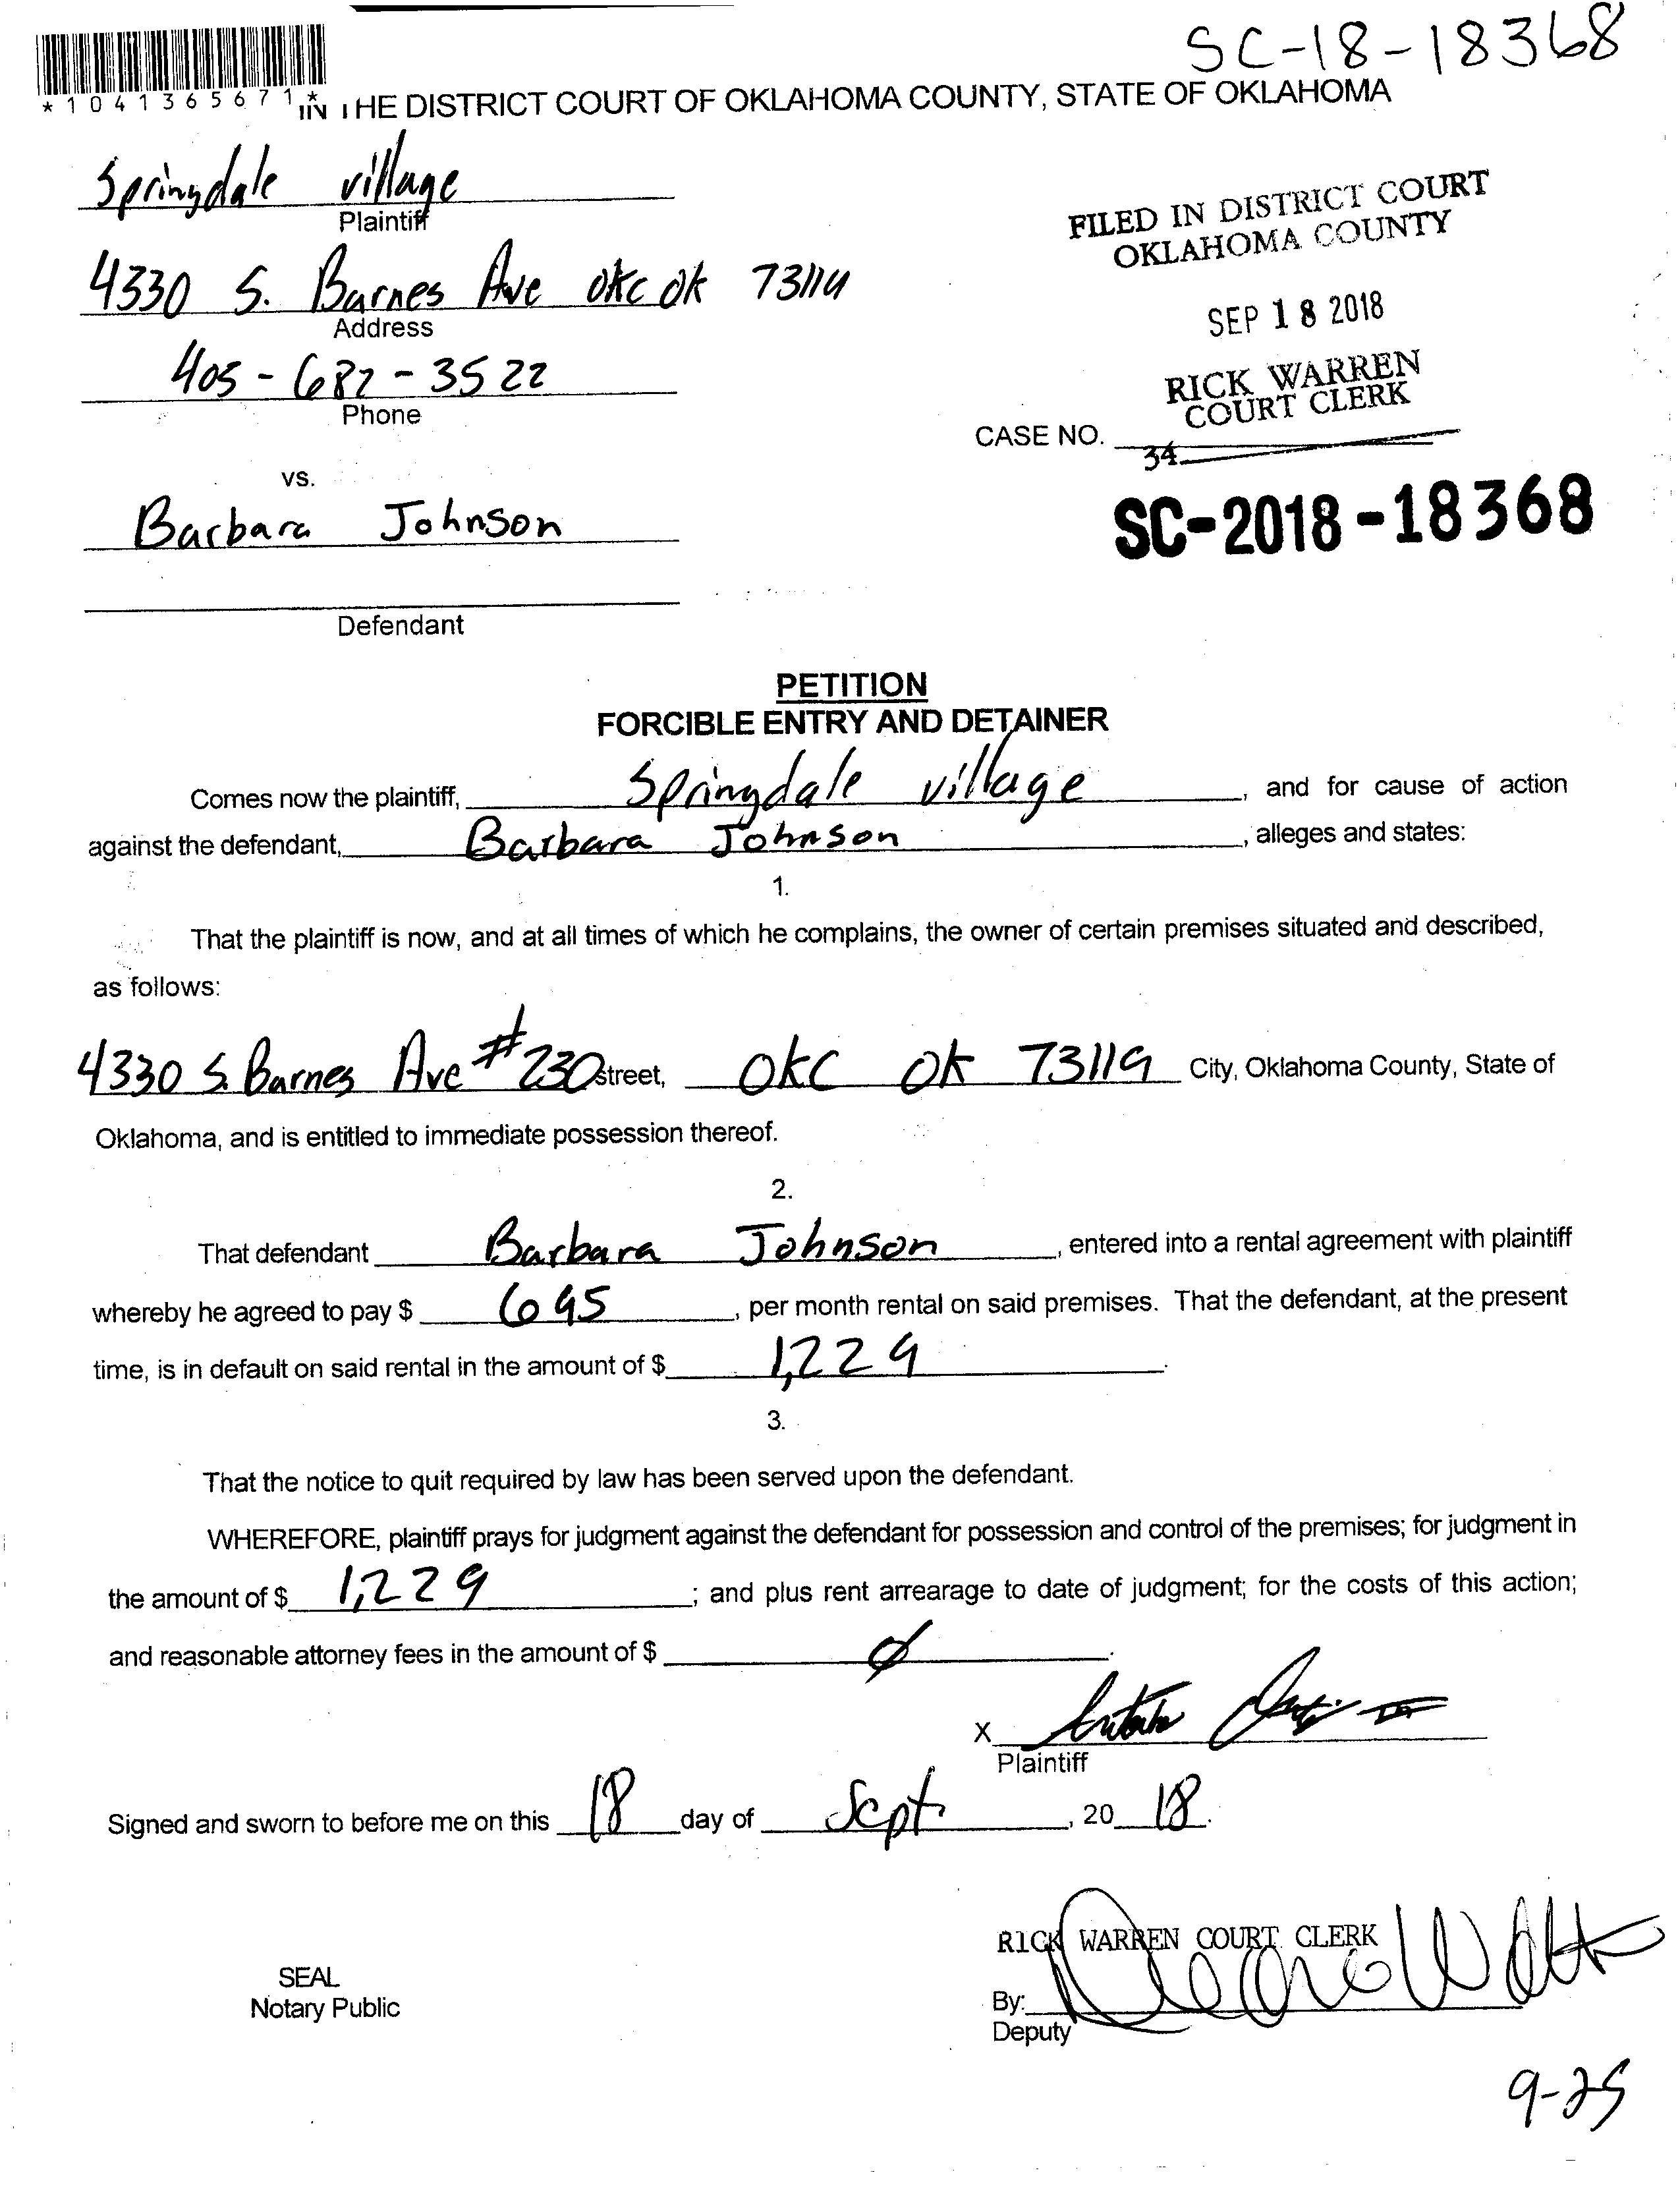 SC-18-18368
*1041365671*
IN THE DISTRICT COURT OF OKLAHOMA COUNTY, STATE OF OKLAHOMA
Springdale village
Plaintiff
4330 S. Barnes Ave OKC OK 73119
Address
405-682-3522
Phone
FILED IN DISTRICT COURT
OKLAHOMA COUNTY
SEP 18 2018
RICK WARREN
COURT CLERK
CASE NO.
34
SC-2018-18368
vs.
Barbara Johnson
Defendant
PETITION
FORCIBLE ENTRY AND DETAINER
Comes now the plaintiff, Springdale village, and for cause of action
against the defendant, Barbara Johnson, alleges and states:
1.
That the plaintiff is now, and at all times of which he complains, the owner of certain premises situated and described,
as follows:
4330 S. Barnes Ave #230 street, OKC OK 73119 City, Oklahoma County, State of
Oklahoma, and is entitled to immediate possession thereof.
2.
That defendant Barbara Johnson, entered into a rental agreement with plaintiff
whereby he agreed to pay $ 695, per month rental on said premises. That the defendant, at the present
time, is in default on said rental in the amount of $ 1,229.
3.
That the notice to quit required by law has been served upon the defendant.
WHEREFORE, plaintiff prays for judgment against the defendant for possession and control of the premises; for judgment in
the amount of $ 1,229; and plus rent arrearage to date of judgment; for the costs of this action;
and reasonable attorney fees in the amount of $ Ø.
X
Plaintiff
Signed and sworn to before me on this 18 day of Sept, 20 18.
RICK WARREN COURT CLERK
SEAL
Notary Public
By:
Deputy
9-25